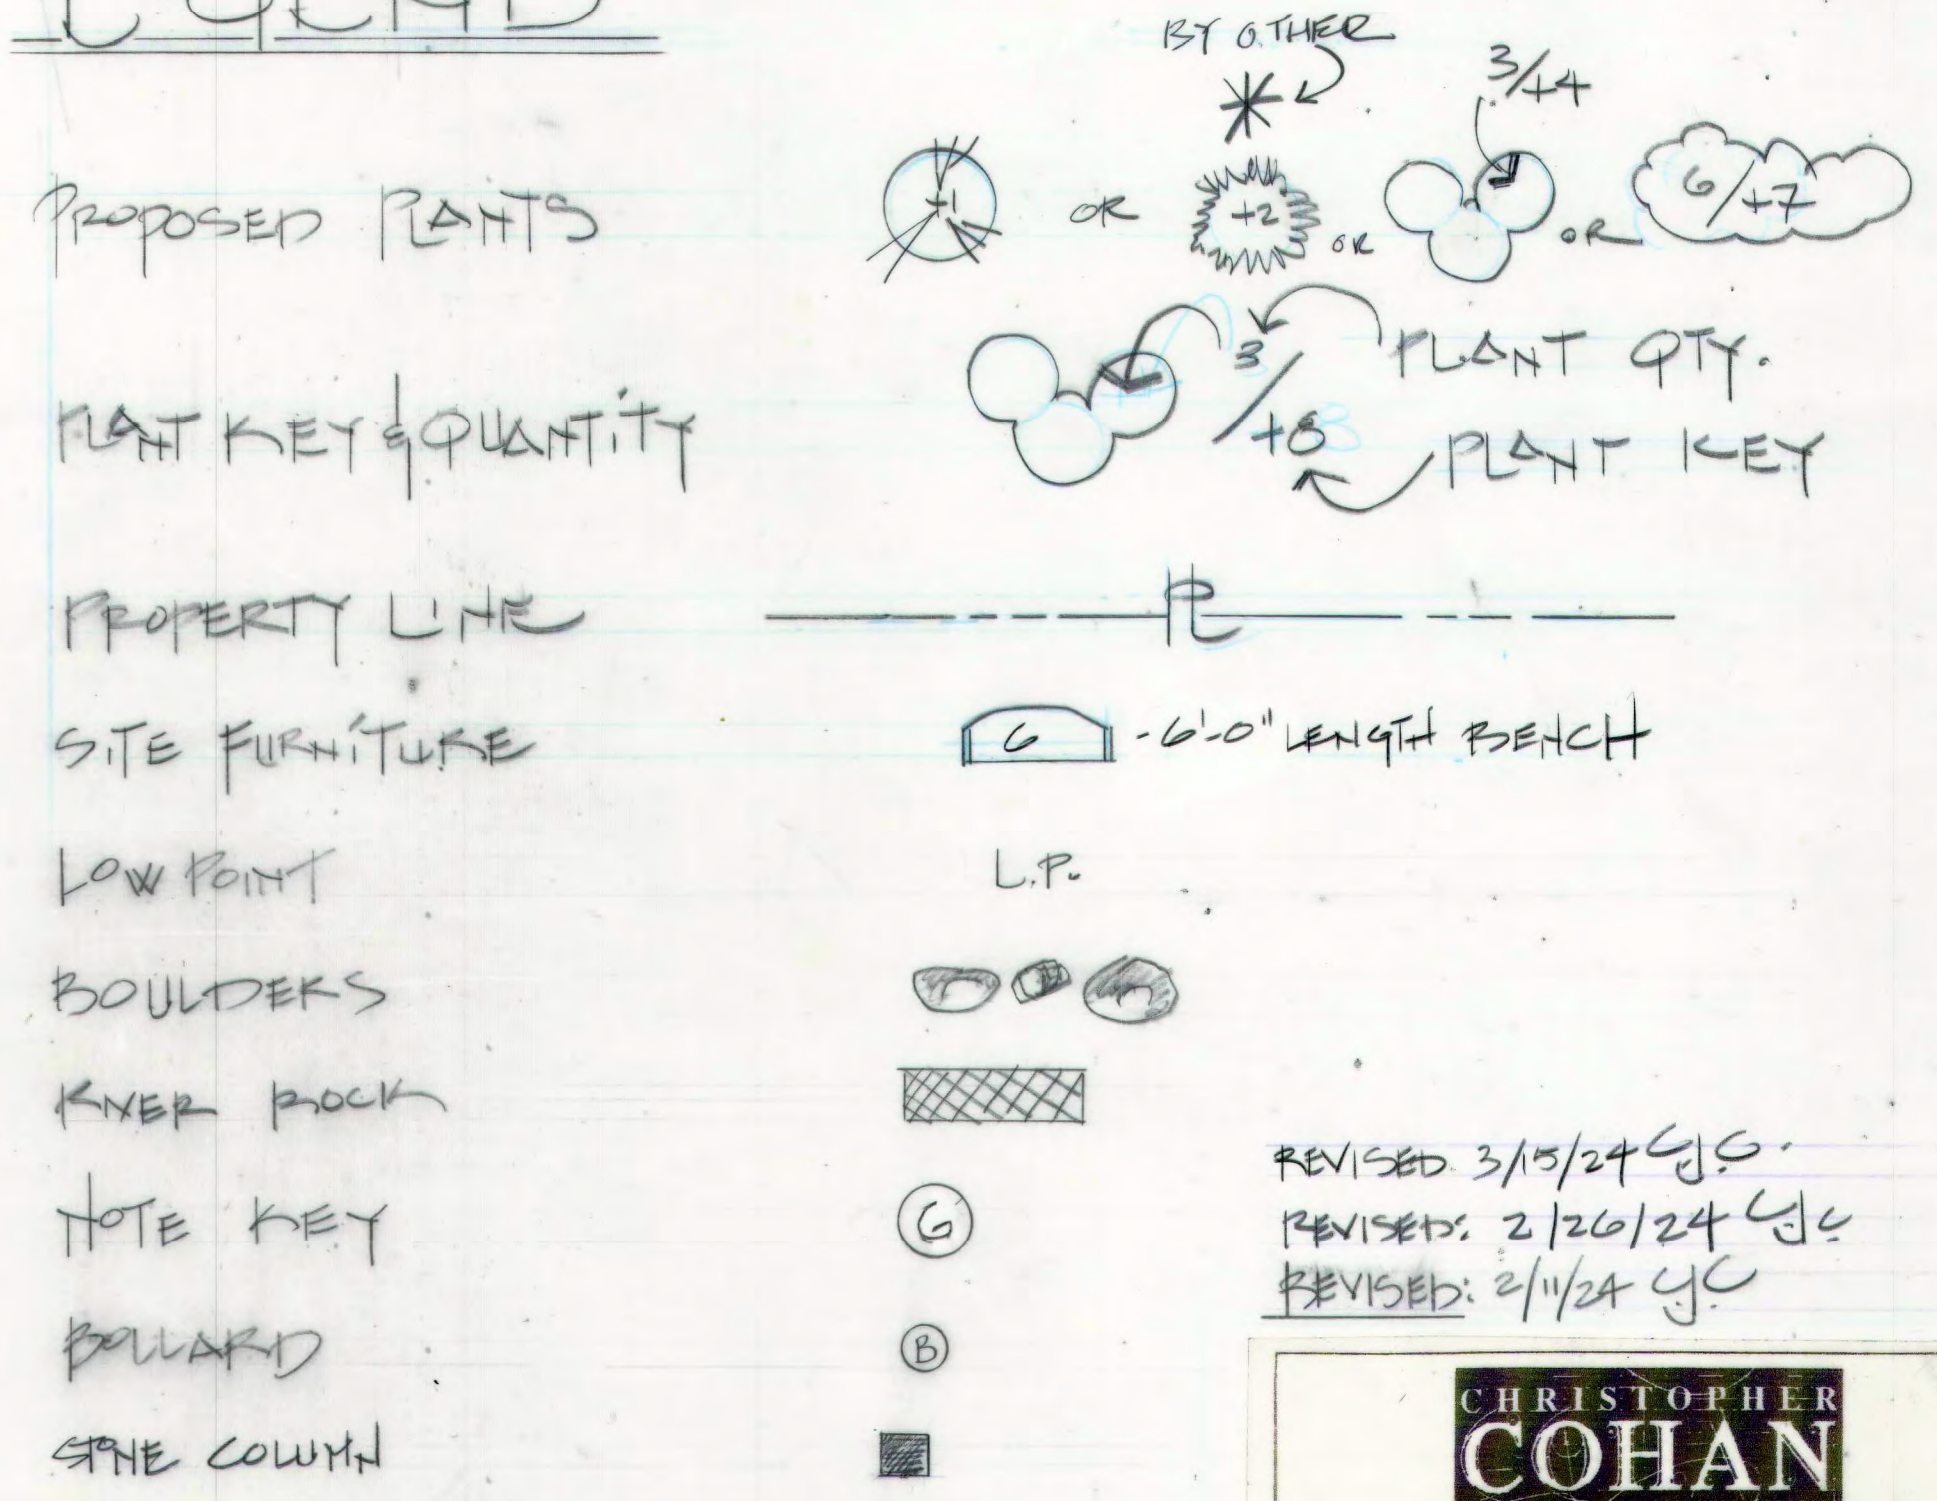 LEGEND
BY OTHER
*
3/+4
PROPOSED PLANTS +1 OR +2 OR OR 6/+7
PLANT KEY & QUANTITY 3/+8 PLANT QTY.
PLANT KEY
PROPERTY LINE PL
SITE FURNITURE 6 - 6'-0" LENGTH BENCH
LOW POINT L.P.
BOULDERS
RIVER ROCK
NOTE KEY G
BOLLARD B
STONE COLUMN
REVISED 3/15/24 CJC.
REVISED: 2/26/24 CJC
REVISED: 2/11/24 CJC
CHRISTOPHER
COHAN